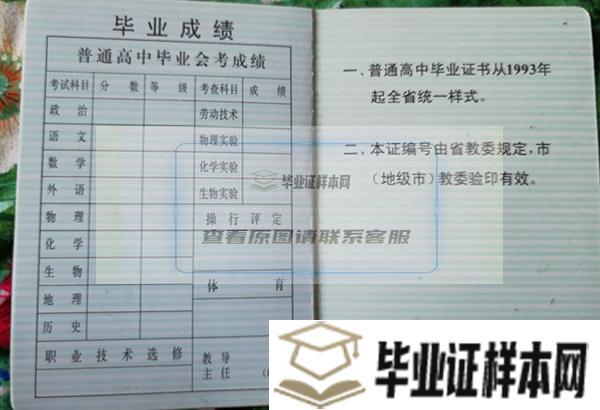 毕业成绩
普通高中毕业会考成绩
考试科目 分数 等级 考查科目 成绩
政治 劳动技术
语文 物理实验
数学 化学实验
外语 生物实验
物理 操行评定
化学
生物
地理 体育
历史
职业技术选修 教导
主任
一、普通高中毕业证书从1993年
起全省统一样式。
二、本证编号由省教委规定,市
(地级市)教委验印有效。
毕业证样本网
查看原图请联系客服
毕业证样本网